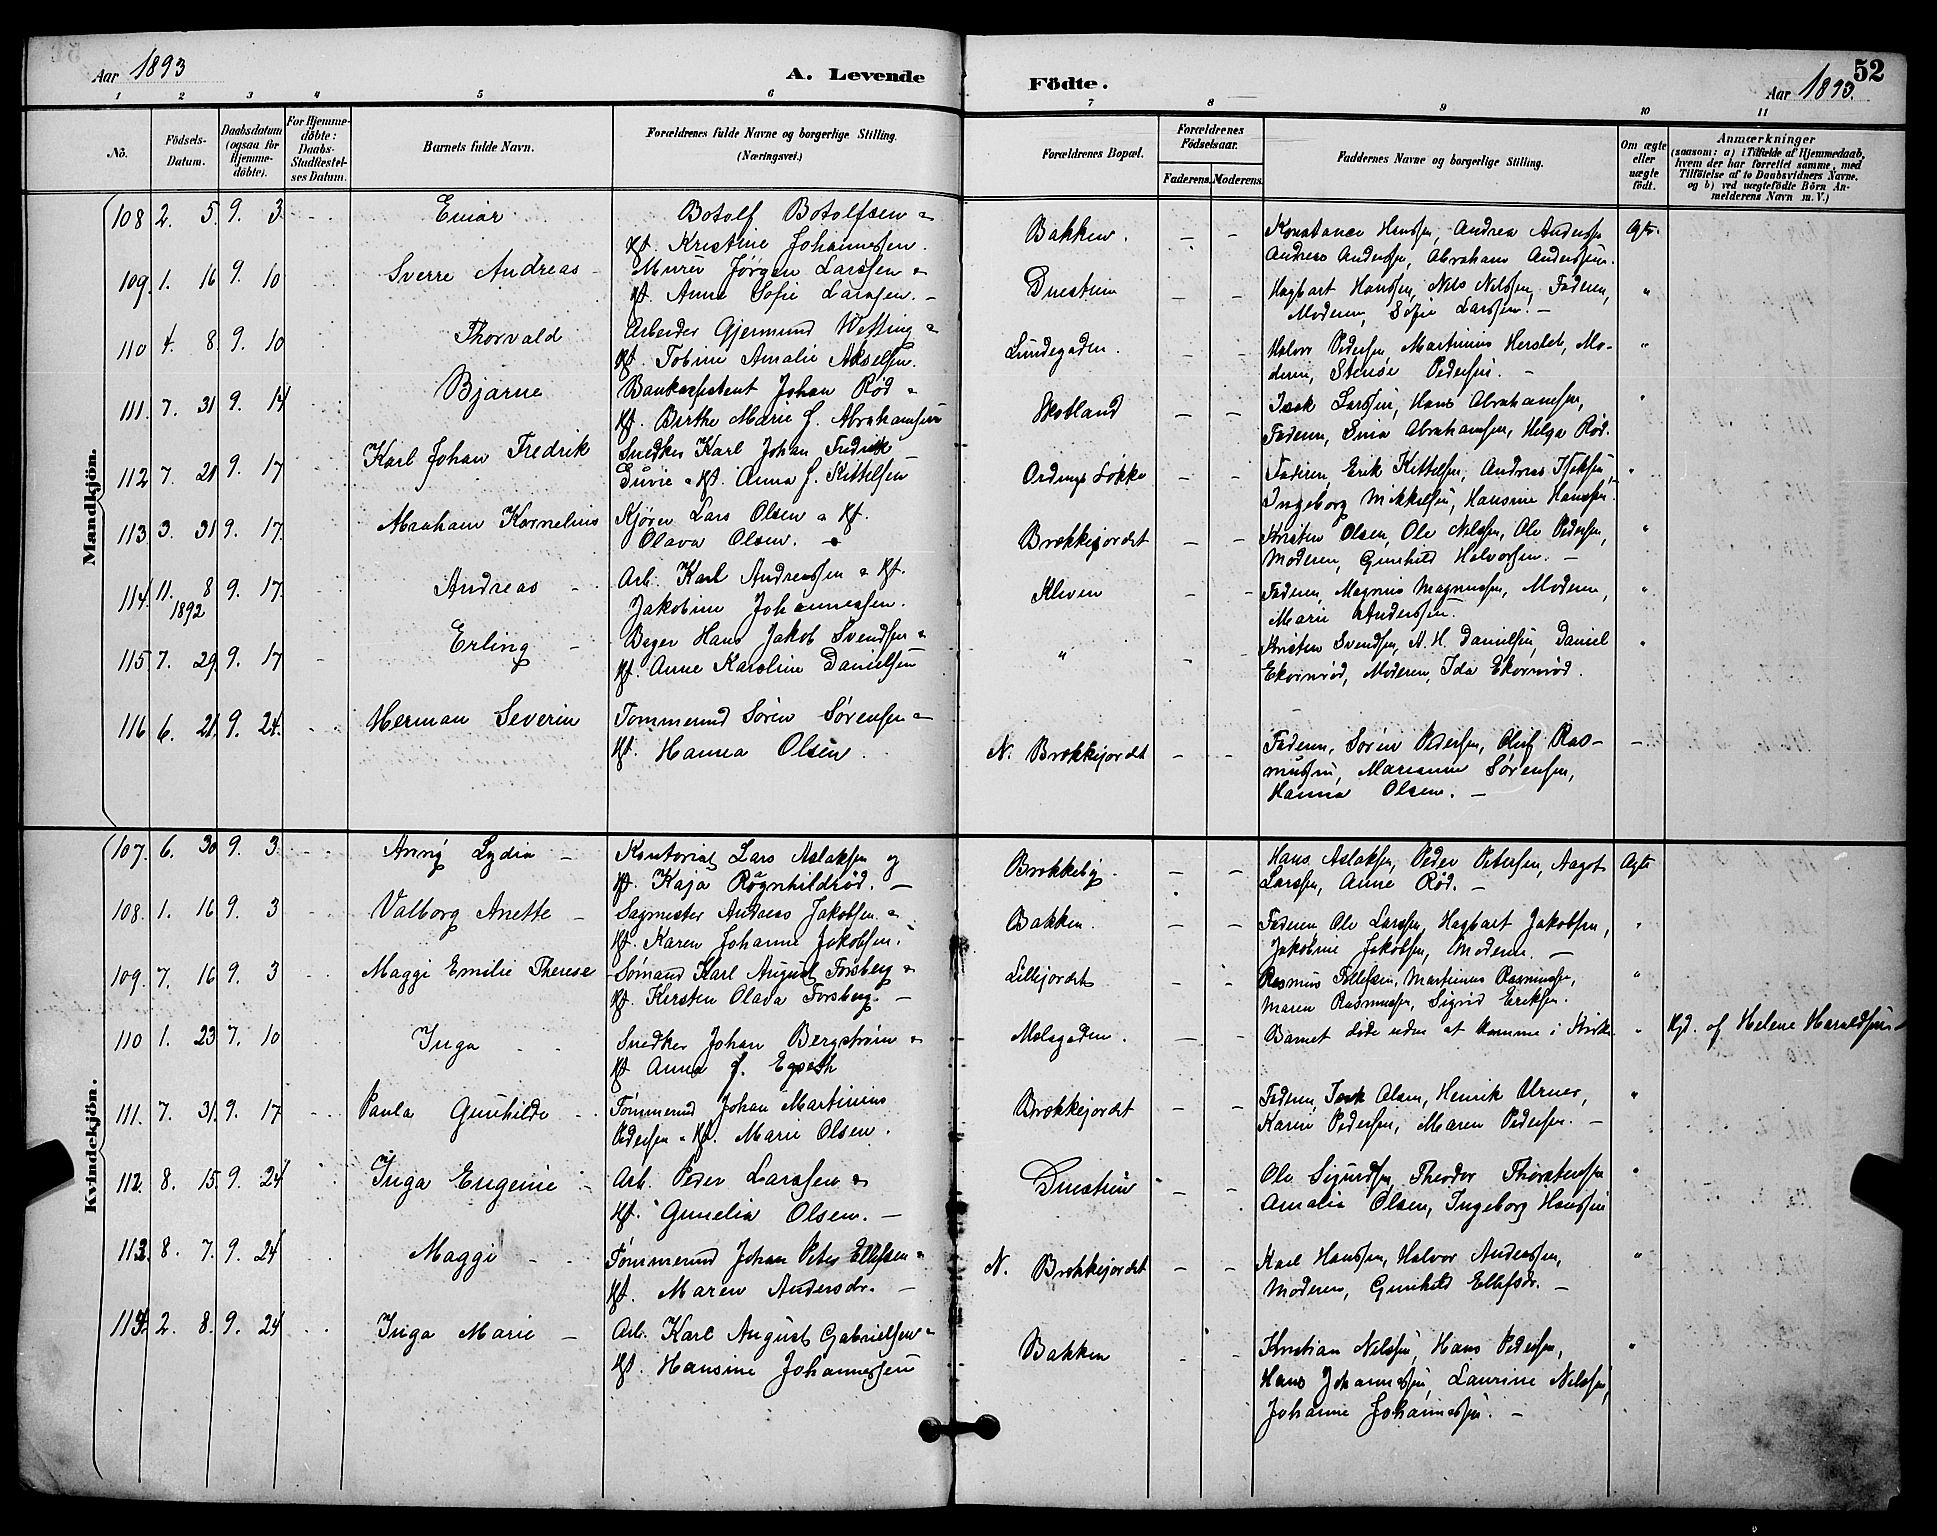 Aar 1893
A. Levende
Födte.
Aar 1893.
52
1 2 3 4 5 6 7 8 9 10 11
No.
Födsels-Datum.
Daabsdatum (ogsaa for Hjemme-döbte).
For Hjemme-döbte: Daabs-Stadfæstel-ses Datum.
Barnets fulde Navn.
Forældrenes fulde Navne og borgerlige Stilling.
(Næringsvei.)
Forældrenes Bopæl.
Forældrenes Födselsaar.
Faderens. Moderens.
Faddernes Navne og borgerlige Stilling.
Om ægte eller uægte födt.
Anmærkninger
(saasom: a) i Tilfælde af Hjemmedaab, hvem der har forrettet samme, med Tilföielse af to Daabsvidners Navne, og b) ved uægtefödte Börn An-melderens Navn m. V.)
Mandkjön.
108 2. 5. 9. 3. Einar Botolf Botolfsen &
Hst. Kristine Johannessen. Bakken. – – Konstance Hanssen, Andrea Anderssen Ægte.
Andreas Anderssen, Abraham Anderssen.
109. 1. 16 9. 10 Sverre Andreas – Murer Jørgen Larssen &
Hst. Anne Sofie Larssen. – – – Hagbart Hanssen, Nils Nilssen, Faderen, "
Moderen, Sofie Larssen. –
110 4. 8. 9. 10 Thorvald Arbeider Gjermund Wetting &
Hst. Tobine Amalie Akselsen. Lundegaden. – – Halvor Pedersen, Martinius Herslet, Mo- "
deren, Pedersen. –
111. 7. 31 9. 14 Bjarne Bankassistent Johan Rød &
Hst. Birthe Marie f. Abrahamsen Skotland – – Isak Larssen, Hans Abrahamsen, "
Faderen, Sina Abrahamsen, Helga Rød.
112 7. 21 9. 17 Karl Johan Fredrik Snedker Karl Johan Fredrik
& Hst. Anna f. Kittelsen Løkke – – Faderen, Erik Kittelsen, Andreas "
Ingeborg Mikkelsen, Hansine Hanssen.
113 3. 31 9. 17. Abraham Kornelius Kjører Lars Olsen & Hst.
Olava Olsen. Brækkejordet – – Kristen Olsen, Ole Nilssen, Ole Pedersen, "
Moderen, Gunhild Halvorsen. –
114. 11. 8 9. 17. Andreas Arb. Karl Andreassen & Hst.
1892
Jakobine Johannessen. Kleven – – Faderen, Magnus Magnussen, Moderen, "
Marie Anderssen.
115 7. 29. 9. 17 Erling – Bager Hans Jakob Svendsen &
Hst. Anne Karoline Danielsen " – – Kristen Svendsen, A. H. Danielsen, Daniel "
Ekornrød, Moderen, Ida Ekornrød.
116 6. 21. 9. 24. Herman Severin Tømmermd Søren Sørensen &
Hst. Hanna Olsen. N. Brækkejordet – – Faderen, Søren Pedersen, Oluf Ras- –
mussen, Marianne Sørensen,
Hanna Olsen. –
Kvindekjön.
107. 6. 30 9. 3. Anny Lydia – Kontorist Lars Aslaksen og
Hst. Kaja Røgnhildrød. – Brækkeby. – – Hans Aslaksen, Peder Petersen, Aagot Ægte
Larssen, Anne Rød. –
108. 1. 16 9. 3 Valborg Anette – Sagmester Andreas Jakobsen &
Hst. Karen Johanne Jakobsen. Bakken. – – Faderen, Ole Larssen, Hagbart Jakobsen, "
Jakobine Jakobsen, Moderen. –
109. 7. 16 9. 3 Maggi Emilie Therese Sømand Karl August Forsberg &
Hst. Kersten Olava Forsberg. – Lillejordet – – Rasmus Tollefsen, Martinus Rasmussen, "
Maren Rasmussen, Sigrid Eriksen.
110 1. 23 7. 10 Inga – – Snedker Johan Bergstrøm &
Hst Anna f. Molagaden. – – Barnet døde uden at komme i Kirke " Hjd. af Helene Haraldsen
111. 7. 31. 9. 17 Paula Gunhilde – Tømmermd Johan Martinius
Pedersen & Hst. Marie Olsen. Brækkejordet – – Faderen, Isak Olsen, Henrik Urnes, "
Karen Pedersen, Maren Pedersen. –
112. 8. 15. 9. 24 Inga Eugenie – Arb. Peder Larssen &
Hst. Gunelia Olsen. – – – Ole Sigurdsen, Theodor Thorstensen "
Amalia Olsen, Ingeborg Hanssen
113. 8. 7. 9. 24 Maggi – – Tømmermd Johan Peter Ellefsen &
Hst. Maren Andersdr. – N. Brækkejordet – – Karl Hanssen, Halvor Anderssen, "
Moderen, Gunhild Ellefsdr. –
114. 2. 8. 9. 24 Inga Marie – Arb. Karl August Gabrielsen &
Hst. Hansine Johannessen Bakken – – Kristian Nilssen, Hans Pedersen, "
Hans Johannessen, Laurine Nilssen,
Johanne Johannessen. –